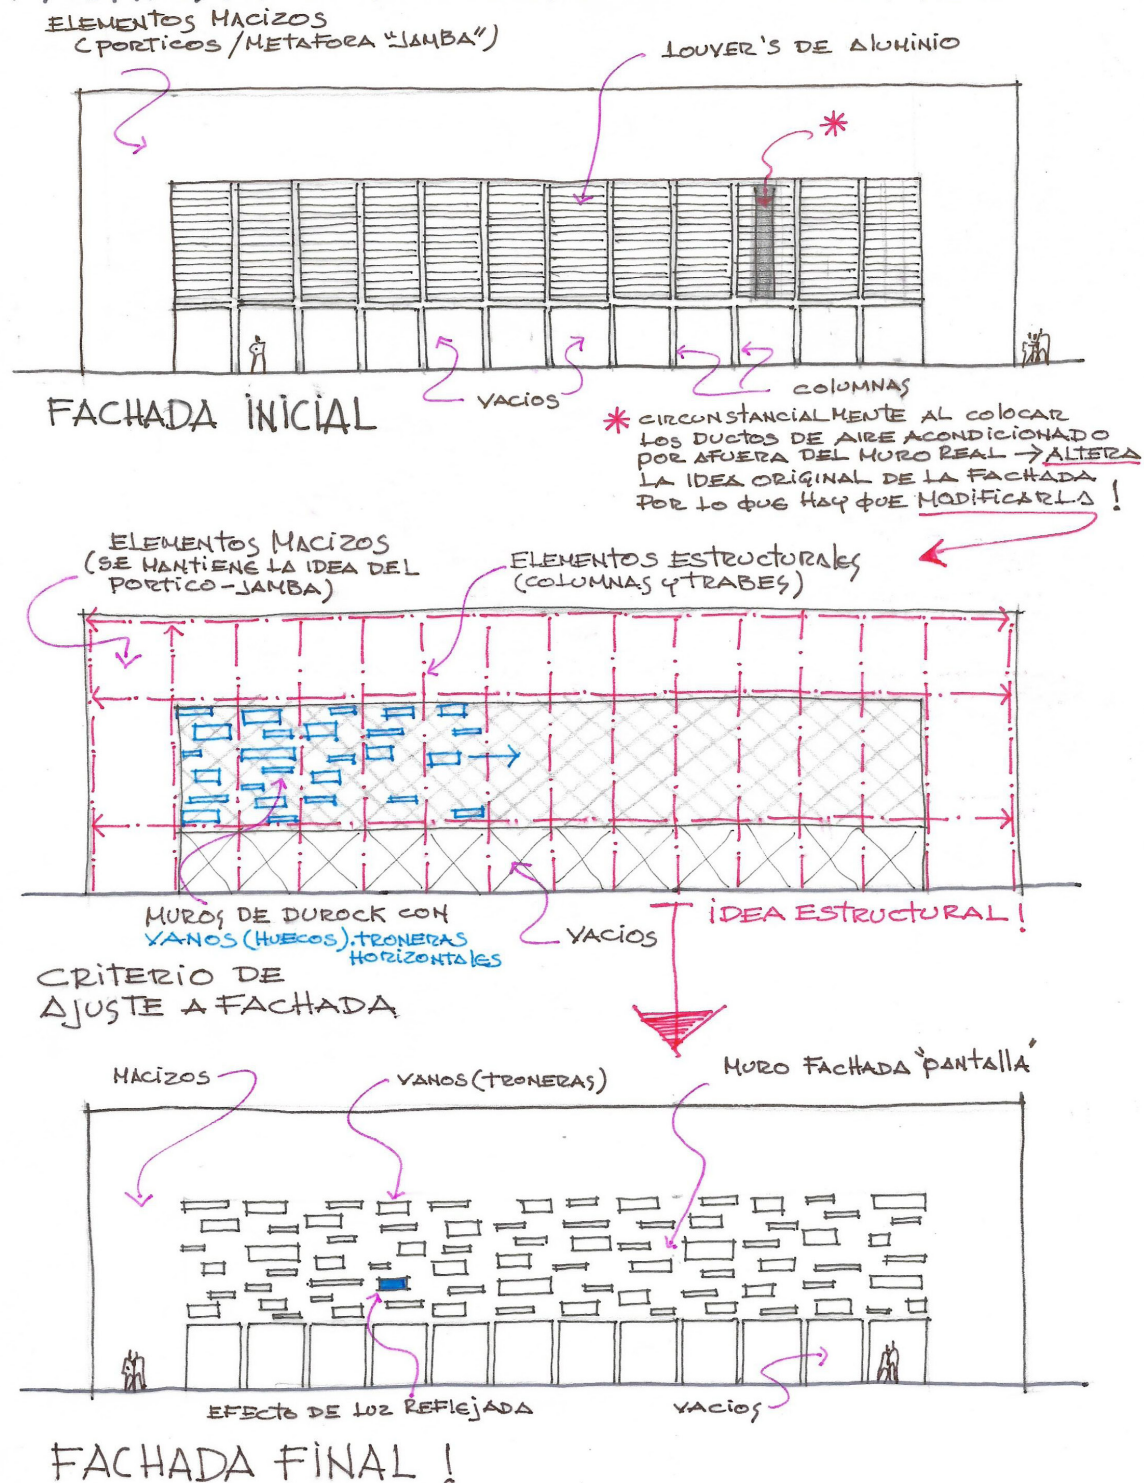 ELEMENTOS MACIZOS
(PORTICOS/METAFORA "JAMBA")
LOUVER'S DE ALUMINIO
*
FACHADA INICIAL
VACIOS
COLUMNAS
* CIRCUNSTANCIALMENTE AL COLOCAR
LOS DUCTOS DE AIRE ACONDICIONADO
POR AFUERA DEL MURO REAL → ALTERA
LA IDEA ORIGINAL DE LA FACHADA
POR LO QUE HAY QUE MODIFICARLA !
ELEMENTOS MACIZOS
(SE MANTIENE LA IDEA DEL
PORTICO-JAMBA)
ELEMENTOS ESTRUCTURALES
(COLUMNAS Y TRABES)
MUROS DE DUROCK CON
VANOS (HUECOS). TRONERAS
HORIZONTALES
VACIOS
IDEA ESTRUCTURAL !
CRITERIO DE
AJUSTE A FACHADA
MACIZOS
VANOS (TRONERAS)
MURO FACHADA "PANTALLA"
EFECTO DE LUZ REFLEJADA
VACIOS
FACHADA FINAL !